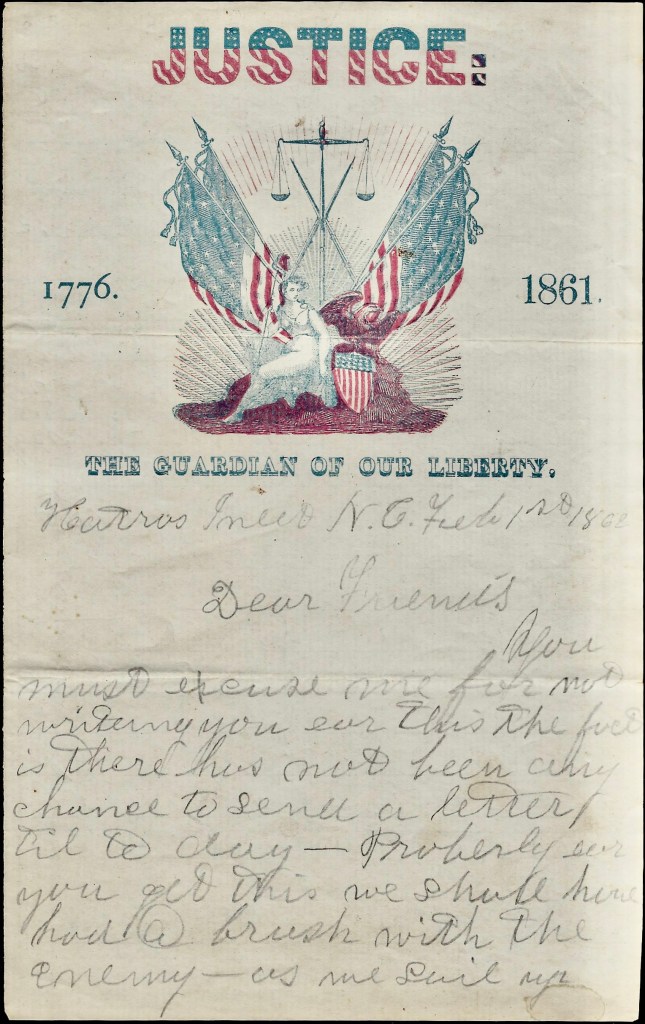 JUSTICE:
1776.
1861.
THE GUARDIAN OF OUR LIBERTY.
Hatros Inlet N.C. Feb 1st 1862
Dear Friends
You
must excuse me for not
writeing you ear this the fact
is there has not been any
chance to send a letter
til to day — Properly ear
you get this we shall have
had a brush with the
Enemy — as we sail up